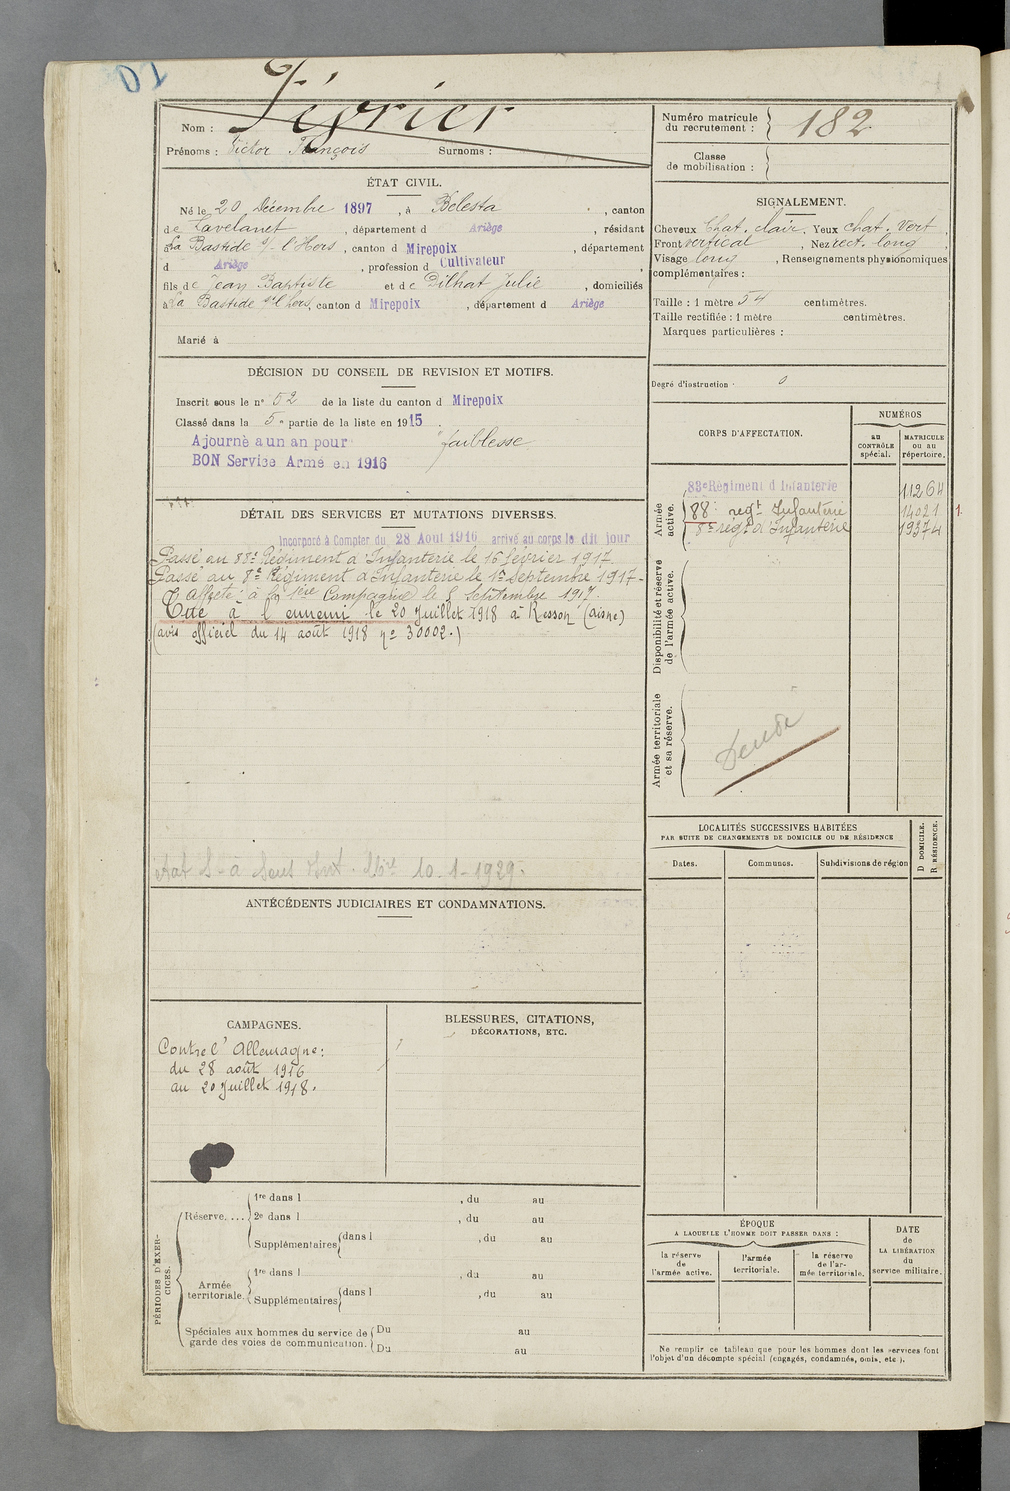 Nom : Février
Prénoms : Victor François Surnoms :
Numéro matricule du recrutement : 182
Classe de mobilisation :
ÉTAT CIVIL.
Né le 20 Décembre 1897, à Belesta, canton
de Lavelanet, département d Ariège, résidant
à La Bastide s/ l'Hers, canton d Mirepoix, département
d Ariège, profession d Cultivateur,
fils de Jean Baptiste et de Dilhat Julie, domiciliés
à La Bastide s/ l'Hers, canton d Mirepoix, département d Ariège
Marié à
SIGNALEMENT.
Cheveux Chat. clair. Yeux chat. vert,
Front vertical, Nez rect. long
Visage long, Renseignements physionomiques
complémentaires :
Taille : 1 mètre 54 centimètres.
Taille rectifiée : 1 mètre centimètres.
Marques particulières :
Degré d'instruction
DÉCISION DU CONSEIL DE REVISION ET MOTIFS.
Inscrit sous le n° 52 de la liste du canton d Mirepoix
Classé dans la 5e partie de la liste en 1915.
Ajourné a un an pour faiblesse
BON Service Armé en 1916
CORPS D'AFFECTATION.
NUMÉROS
au CONTRÔLE spécial.
MATRICULE ou au répertoire.
Armée active.
83e Régiment d Infanterie 11264
88e regt Infanterie 14021
8e régt d'Infanterie 19374
Disponibilité et réserve de l'armée active.
Armée territoriale et sa réserve.
DÉTAIL DES SERVICES ET MUTATIONS DIVERSES.
Incorporé à Compter du 28 Aout 1916 arrivé au corps le dit jour
Passé au 88e Régiment d'Infanterie le 16 février 1917
Passé au 8e Régiment d'Infanterie le 1er Septembre 1917-
Affecté à la 1ère Campagnie le 8 Septembre 1917.
Tué à l'ennemi le 20 Juillet 1918 à Resson (aisne)
(avis officiel du 14 août 1918 n° 30002.)
10-1-1929.
LOCALITÉS SUCCESSIVES HABITÉES
PAR SUITE DE CHANGEMENTS DE DOMICILE OU DE RÉSIDENCE
Dates. Communes. Subdivisions de région
D DOMICILE. R RÉSIDENCE.
ANTÉCÉDENTS JUDICIAIRES ET CONDAMNATIONS.
CAMPAGNES.
Contre l'Allemagne :
du 28 août 1916
au 20 Juillet 1918.
BLESSURES, CITATIONS,
DÉCORATIONS, ETC.
PÉRIODES D'EXERCICES.
Réserve....
1re dans l , du au
2e dans l , du au
Supplémentaires dans l , du au
Armée territoriale.
1re dans l , du au
Supplémentaires dans l , du au
Spéciales aux hommes du service de garde des voies de communication.
Du au
Du au
ÉPOQUE
A LAQUELLE L'HOMME DOIT PASSER DANS :
la réserve de l'armée active.
l'armée territoriale.
la réserve de l'armée territoriale.
DATE de LA LIBÉRATION du service militaire.
Ne remplir ce tableau que pour les hommes dont les services font
l'objet d'un décompte spécial (engagés, condamnés, omis, etc).